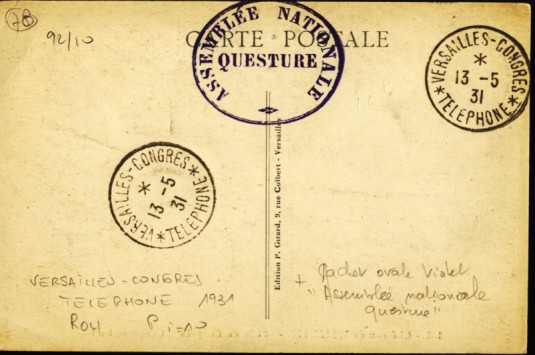 78
92/10
CARTE POSTALE
ASSEMBLÉE NATIONALE
QUESTURE
*VERSAILLES-CONGRES*
*
13 -5
31
TELEPHONE
VERSAILLES-CONGRES
*
13 -5
31
*TELEPHONE*
Edition P. Girard, 9, rue Colbert - Versailles
VERSAILLES-CONGRES
TELEPHONE 1931
+ Cachet ovale Violet
"Assemblée nationale
questure"